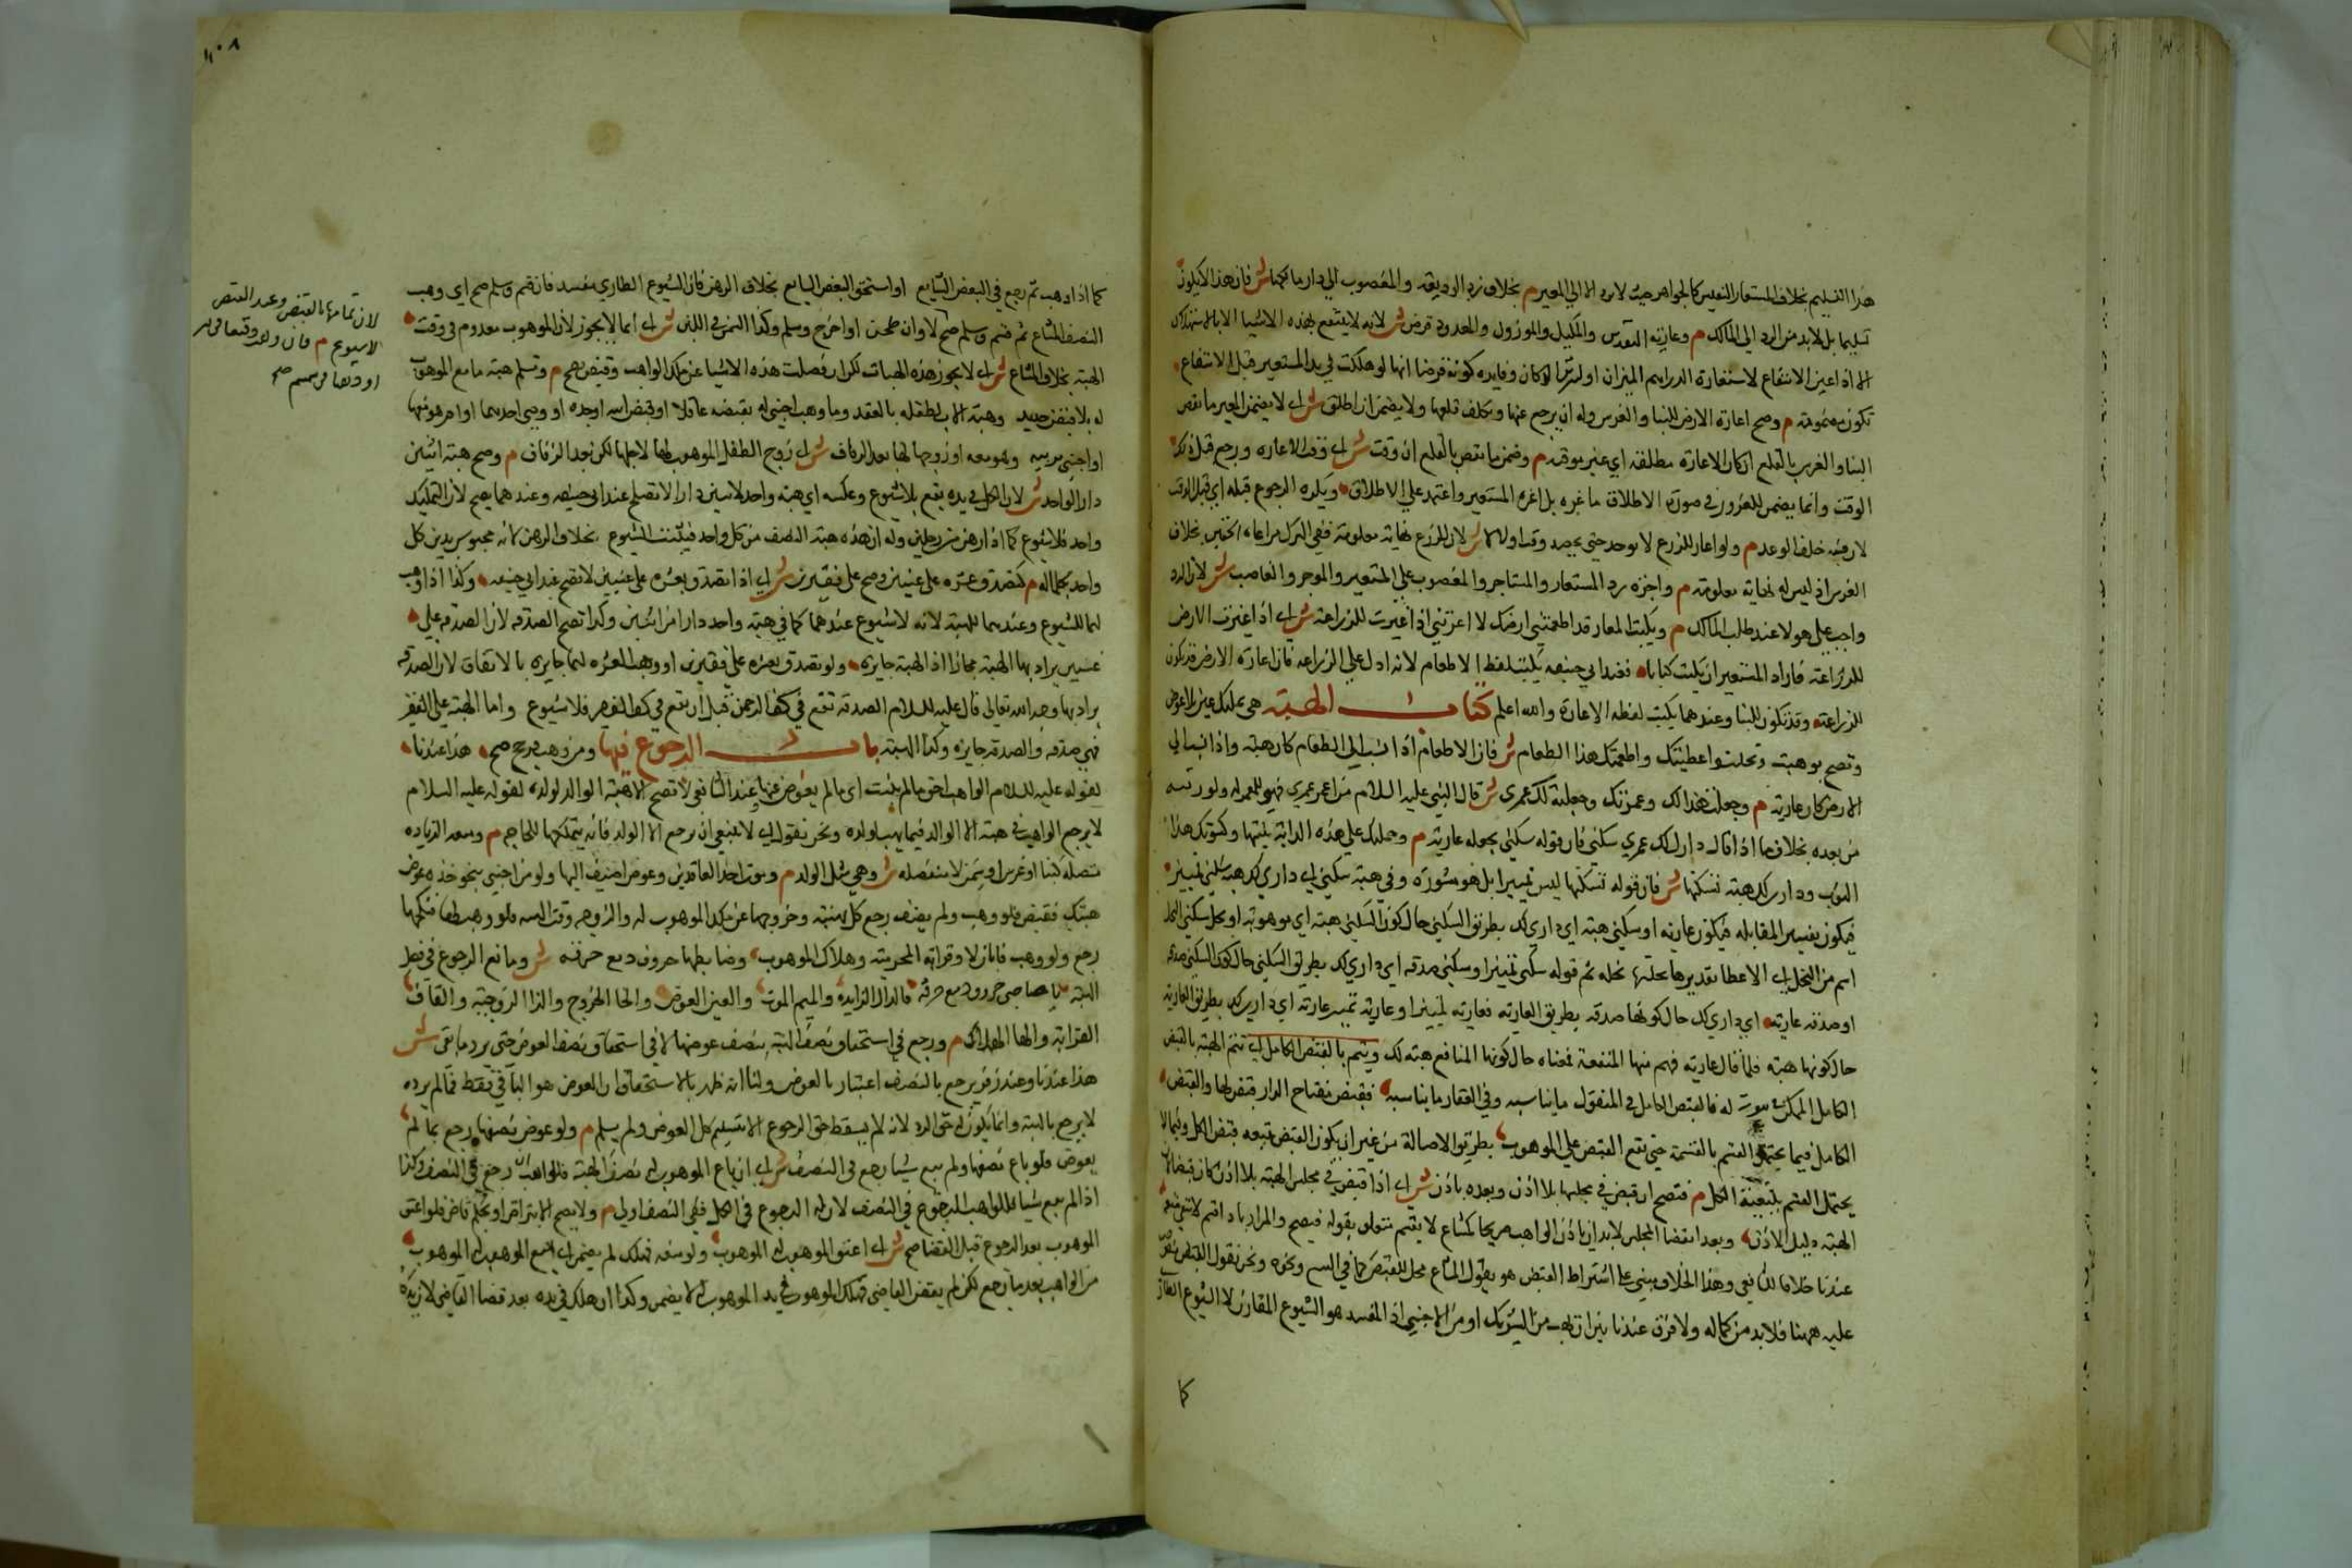 هذا التسليم بخلاف المستعار النفيس كالجواهر حيث لا يرد الا الي المعير م بخلاف رد الوديعة والمغصوب الي دار مالكهما ش فان هذا لا يكون
تسليما بل لابد من الرد الي المالك م وعارية النقدين والمكيل والموزون والمعدود قرض ش لانه لا ينتفع بهذه الاشيا الا بالاستهلاك
الا اذا عين الانتفاع لاستعارة الدراهم الميزان او ليزين الدكان وفايدة كونه قرضا انها لو هلكت في يد المستعير قبل الانتفاع
تكون مضمونة م وصح اعارة الارض للبنا والغرس وله ان يرجع عنها ويكلف قلعها ولا يضمن ان اطلق ش اي لا يضمن المعير ما نقص
البنا والغرس بالقلع ان كان الاعارة مطلقة اي غير موقتة م وضمن ما نقص بالقلع ان وقت ش اي وقت الاعارة ورجع قبل ذلك
الوقت وانما يضمن للغرور في صورة الاطلاق ما غره بل اغتر المستعير واعتمد علي الاطلاق ويكره الرجوع قبله اي قبل الوقت
لان فيه خلف الوعد م ولو اعار للزرع لا يوخذ حتي يحصد وقت او لا ش لان للزرع نهاية معلومة ففي الترك مراعاة الحقين بخلاف
الغرس اذ ليس له نهاية معلومة م واجرة رد المستعار والمستاجر والمغصوب علي المستعير والموجر والغاصب ش لان الرد
واجب علي هولا عند طلب المالك م ويكتب المعار قد اطعمتني ارضك لا اعرتني اذا اعيرت للزراعة ش اي اذا اعيرت الارض
للزراعة فاراد المستعير ان يكتب كتابا فعند ابي حنيفه يكتب لفظ الاطعام لانه ادل علي الزراعه فان اعارة الارض قد تكون
للزراعة وقد تكون للبنا وعندهما يكتب لفظه الاعارة والله اعلم كتاب الهبة هي تمليك عين بلا عوض
وتصح بوهبت ونحلت واعطيتك واطعمتك هذا الطعام ش فان الاطعام اذا نسب الي الطعام كان هبة واذا نسب الي
الارض كان عارية م وجعلت هذا لك وعمرتك وجعلته لك عمري ش قال النبي عليه السلام من اعمر عمري فهي للمعمر له ولورثته
من بعده بخلاف ما اذا قال داري لك عمري سكني فان قوله سكني يجعله عارية م وحملتك علي هذه الدابة بنيتها وكسوتك هذا
الثوب وداري لك هبة تسكنها ش فان قوله تسكنها ليس تمييزا بل هو مشورة وفي هبة سكني اي داري لك هبة سكني تمييز
فيكون تفسير المقابله فيكون عارية او سكني هبة اي داري لك بطريق السكني حال كون السكني هبة اي موهوبة او نحلي سكني النحلي
اسم من النحل اي الاعطا تقديرها نحلتها نحلة ثم قوله سكني تمييز او سكني صدقة اي داري لك بطريق السكني حال كون السكني صدقة
او صدقة عارية اي داري لك حال كونها صدقة بطريق العارية فعارية تمييز او عارية تمييز عارية اي داري لك بطريق العارية
حال كونها هبة فلما قال عارية فهم منها المنفعة فمعناه حال كونها المنافع هبة لك ويتم بالقبض الكامل اي تتم الهبة بالقبض
الكامل الممكن له فالقبض الكامل في المنقول ما يناسبه وفي العقار ما يناسبه فقبض مفتاح الدار قبض لها والقبض
الكامل فيما يحتمل القسم بالقسمة حتي تقع القبض علي الموهوب بطريق الاصالة من غير ان يكون القبض بتبعية قبض الكل وفيما لا
يحتمل القسم بتبعية الكل م فتصح ان قبض في مجلسها بلا اذن وبعده باذن ش اي اذا قبض في مجلس الهبة بلا اذن كان قبضا لان
الهبة دليل الاذن وبعد انقضا المجلس لابد ان ياذن الواهب صريحا كمشاع لا يقسم متعلق بقوله فيصح والمراد
عندنا خلافا للشافعي وهذا الخلاف مبني علي اشتراط القبض هو يقول المشاع محل للقبض كما في البيع ونحوه ونحن نقول القبض
عليه ههنا فلا بد من كماله ولا فرق عندنا بين ان يهب من الشريك او من الاجنبي اذ المفسد هو الشيوع المقارن لا الشيوع الطاري
كما
١٠٨
كما اذا وهب ثم رجع في البعض الشايع او استحق البعض الشايع بخلاف الرهن فان الشيوع الطاري مفسد فان قسم وسلم صح اي وهب
النصف المشاع ثم قسم وسلم صح لا وان طحن او اخرج وسلم وكذا السمن في اللبن ش اي انما لا يجوز لان الموهوب معدوم في وقت
الهبة بخلاف المشاع ش اي لا يجوز هذه الهبات لكن ان فصلت هذه الاشيا عن ملك الواهب وقبض صح م وتسلم هبة ما مع الموهوب
له بلا قبض جديد وهبة الاب لطفله بالعقد وما وهب اجنبي له بقبضه عاقلا او قبض ابيه او جده او وصي احدهما او ام هو معها
او اجنبي يربيه وهو معه او زوجها لها بعد الزفاف ش اي زوج الطفل الموهوب لها لاجلها لكن بعد الزفاف م وصح هبة اثنين
دارا لواحد ش لان الكل في يده يقع بلا شيوع وعكسه اي هبة واحد لاثنين دارا لا تصلح عند ابي حنيفه وعندهما يصح لان التمليك
واحد فلا شيوع كما اذا رهن من رجلين وله ان هذه هبة النصف من كل واحد فيثبت الشيوع بخلاف الرهن لانه محبوس بدين كل
واحد بكماله م كتصدق عشرة علي غنيين وصح علي فقيرين ش اي اذا تصدق بعشرة علي غنيين لا تصح عند ابي حنيفه وكذا اذا وهب
لهما للشيوع وعندهما للهبة لانه لا شيوع عندهما كما في هبة واحد دارا من اثنين وكذا تصح الصدقه لان الصدقة علي
غنيين يراد بها الهبة مجازا اذ الهبة جايزة ولو تصدق بعشرة علي فقيرين او وهب العشرة لهما جايزة بالاتفاق لان الصدقة
يراد بها وجه الله تعالي قال عليه السلام الصدقة تقع في كف الرحمن قبل ان يقع في كف الفقير فلا شيوع واما الهبة علي الفقير
فهي صدقة والصدقة جايزة وكذا الهبة باب الرجوع فيها ومن وهب فرجع صح هذا عندنا
لقوله عليه السلام الواهب احق ما لم يثب اي ما لم يعوض عنها وعند الشافعي لا تصح الا هبة الوالد لولده لقوله عليه السلام
لا يرجع الواهب في هبته الا الوالد فيما يهب لولده ونحن نقول اي لا ينبغي ان يرجع الا الوالد فانه يتملكها للحاجة م ومنعه الزيادة
متصلة كبنا او غرس او سمن لا منفصله ش وهي مثل الولد م وموت احد العاقدين وعوض اضيف اليها ولو من اجنبي بنحو خذه عوض
هبتك فقبض فلو وهب ولم يضف رجع كل بهبته وخروجها عن ملك الموهوب له والزوجية وقت الهبة فلو وهب لها فنكحها
رجع ولو وهب فابان لا وقرابة المحرمية وهلاك الموهوب وضابطها حروف دمع خزقه ش ومانع الرجوع في فصل
الهبة يا صاحبي حروف دمع خزقه فالدال الزايدة والميم الموت والعين العوض والخا الخروج والزا الزوجية والقاف
القرابة والها الهلاك م ورجع في استحقاق نصف الهبة بنصف عوضها لا في استحقاق نصف العوض حتي يرد ما بقي ش
هذا عندنا وعند زفر يرجع بالنصف اعتبارا بالعوض ولنا انه ظهر بالاستحقاق ان العوض هو الباقي فقط فما لم يرده
لا يرجع بالهبة وانما يكون له حق الرد لانه لم يسقط حق الرجوع الا بتسليم كل العوض ولم يسلم م ولو عوض نصفها رجع بما لم
يعوض فلو باع نصفها ولم يبع شيا رجع في النصف ش اي ان باع الموهوب له نصف الهبة فللواهب ان رجع في النصف وكذا
اذا لم يبع شيا فللواهب الرجوع في النصف لان له الرجوع في الكل ففي النصف اولي م ولا يصح الا بتراض او بحكم قاض فلو اعتق
الموهوب بعد الرجوع قبل القضا صح ش اي اعتق الموهوب له الموهوب ولو منعه فهلك لم يضمن اي منع الموهوب له الموهوب
من الواهب بعد ما رجع لكن لم يقض القاضي فهلك الموهوب في يد الموهوب له لا يضمن وكذا ان هلك في يده بعد قضا القاضي لان يده
لان تمامها بالقبض وعند القبض
لا شيوع م فان